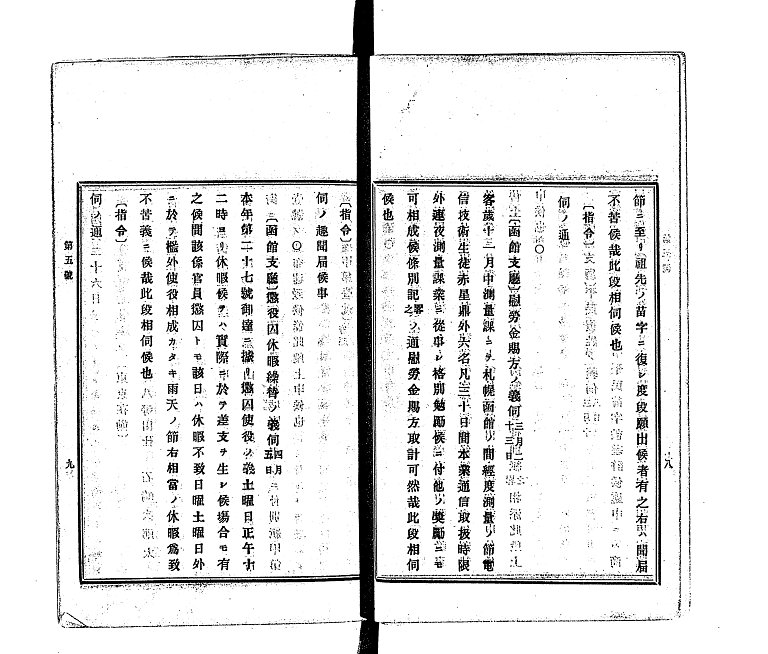 節ニ至リ祖先ノ苗字ニ復シ度段願出候者有之右ハ開局
不苦候哉此段相伺候也
〔指令〕
伺ノ通
〔函館支廳〕慰勞金賜方ノ義伺 三月二十三日
客歲十二月中測量課ニ於テ札幌函館ノ間經度測量ノ節電
信技術生徒赤星鼎外六名凡三十日間本業通信取扱時限
外連夜測量課業ニ從事シ格別勉勵候ニ付他ノ奬勵ニモ
可相成候條別記之通慰勞金賜方取計可然哉此段相伺
候也
八
〔指令〕
伺ノ趣聞届候事
〔函館支廳〕懲役囚休暇繰替ノ義伺 四月五日
本年第二十七號御達ニ據リ懲囚使役ノ義土曜日正午十
二時ヨリ休暇候テハ實際ニ於テ差支ヲ生シ候場合モ有
之候間該係官員懲囚トモ該日ハ休暇不致日曜土曜日外
ニ於テ檻外使役相成カタキ雨天ノ節右相當ノ休暇爲致
不苦義ニ候哉此段相伺候也
〔指令〕
伺ノ通 二十六日
第五號
九